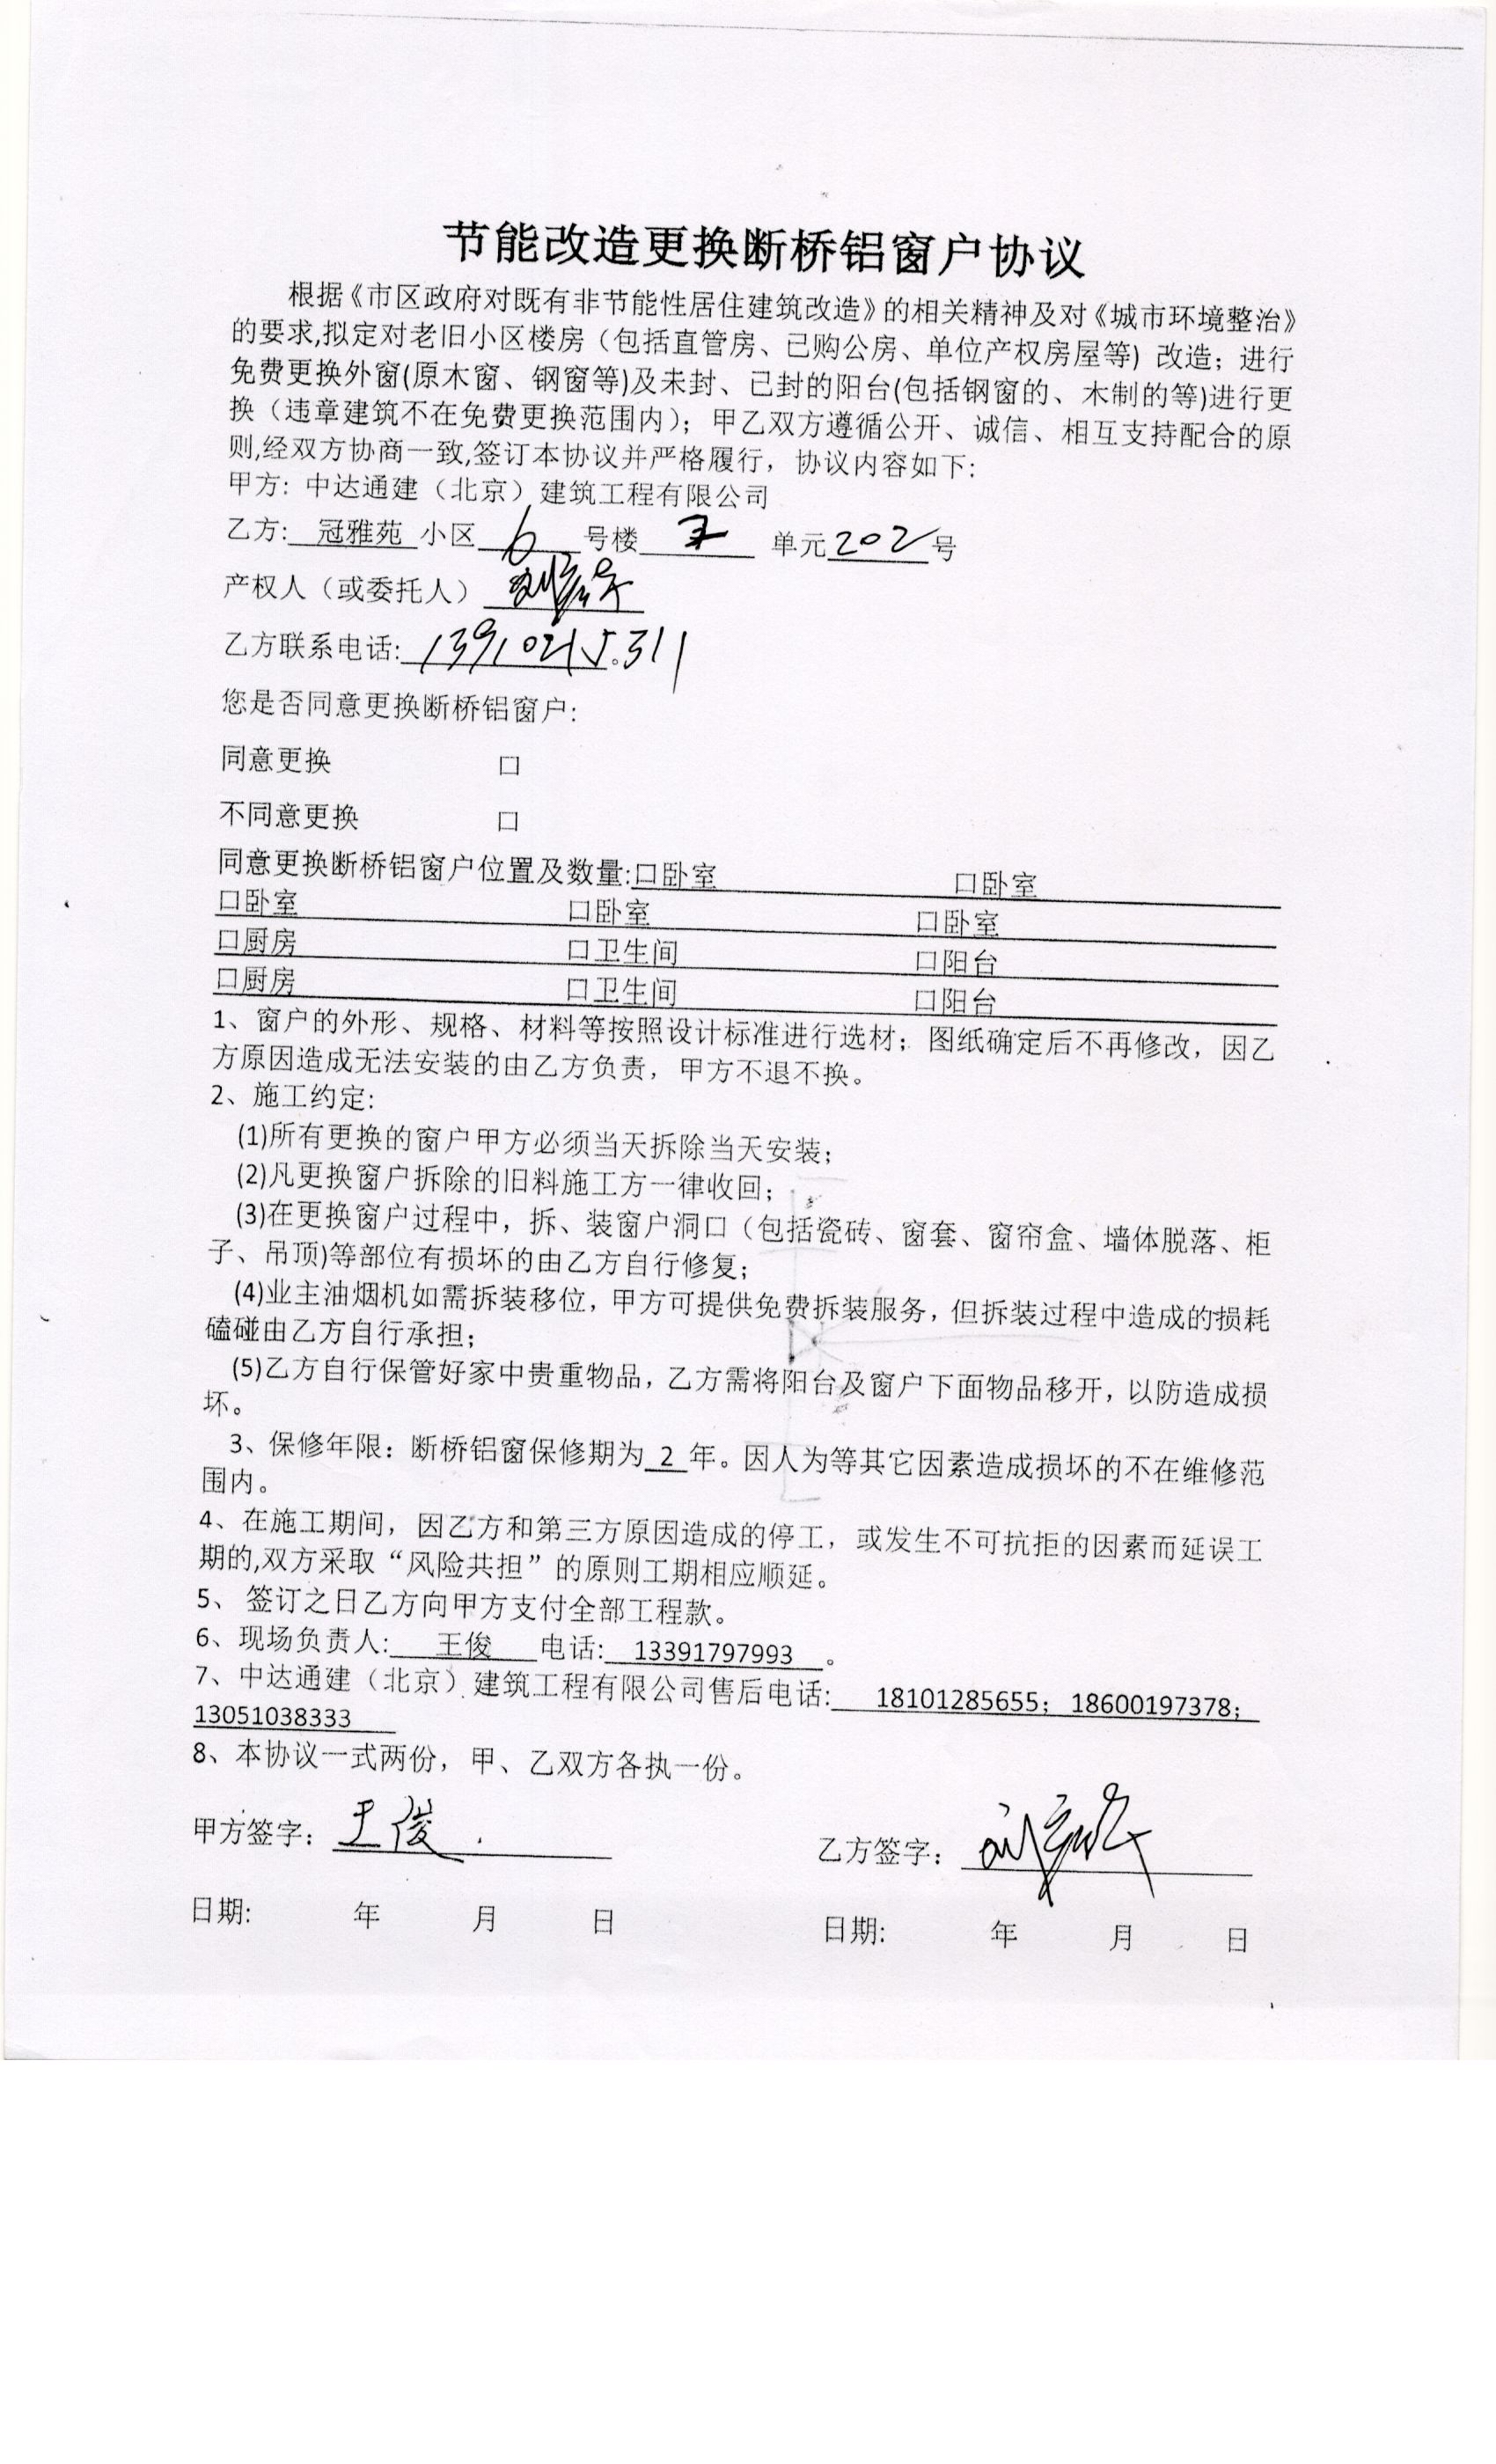 节能改造更换断桥铝窗户协议
根据《市区政府对既有非节能性居住建筑改造》的相关精神及对《城市环境整治》
的要求,拟定对老旧小区楼房（包括直管房、已购公房、单位产权房屋等）改造；进行
免费更换外窗(原木窗、钢窗等)及未封、已封的阳台(包括钢窗的、木制的等)进行更
换（违章建筑不在免费更换范围内）；甲乙双方遵循公开、诚信、相互支持配合的原
则,经双方协商一致,签订本协议并严格履行，协议内容如下：
甲方：中达通建（北京）建筑工程有限公司
乙方: 冠雅苑 小区 6 号楼 单元 202 号
产权人（或委托人）
乙方联系电话:
您是否同意更换断桥铝窗户:
同意更换 口
不同意更换 口
同意更换断桥铝窗户位置及数量:口卧室 口卧室
口卧室 口卧室 口卧室
口厨房 口卫生间 口阳台
口厨房 口卫生间 口阳台
1、窗户的外形、规格、材料等按照设计标准进行选材；图纸确定后不再修改，因乙
方原因造成无法安装的由乙方负责，甲方不退不换。
2、施工约定:
(1)所有更换的窗户甲方必须当天拆除当天安装；
(2)凡更换窗户拆除的旧料施工方一律收回；
(3)在更换窗户过程中，拆、装窗户洞口（包括瓷砖、窗套、窗帘盒、墙体脱落、柜
子、吊顶)等部位有损坏的由乙方自行修复；
(4)业主油烟机如需拆装移位，甲方可提供免费拆装服务，但拆装过程中造成的损耗
磕碰由乙方自行承担；
(5)乙方自行保管好家中贵重物品，乙方需将阳台及窗户下面物品移开，以防造成损
坏。
3、保修年限：断桥铝窗保修期为 2 年。因人为等其它因素造成损坏的不在维修范
围内。
4、在施工期间，因乙方和第三方原因造成的停工，或发生不可抗拒的因素而延误工
期的,双方采取“风险共担”的原则工期相应顺延。
5、 签订之日乙方向甲方支付全部工程款。
6、现场负责人: 王俊 电话: 13391797993 。
7、中达通建（北京）建筑工程有限公司售后电话: 18101285655；18600197378；
13051038333
8、本协议一式两份，甲、乙双方各执一份。
甲方签字： 王俊 乙方签字：
日期: 年 月 日 日期: 年 月 日